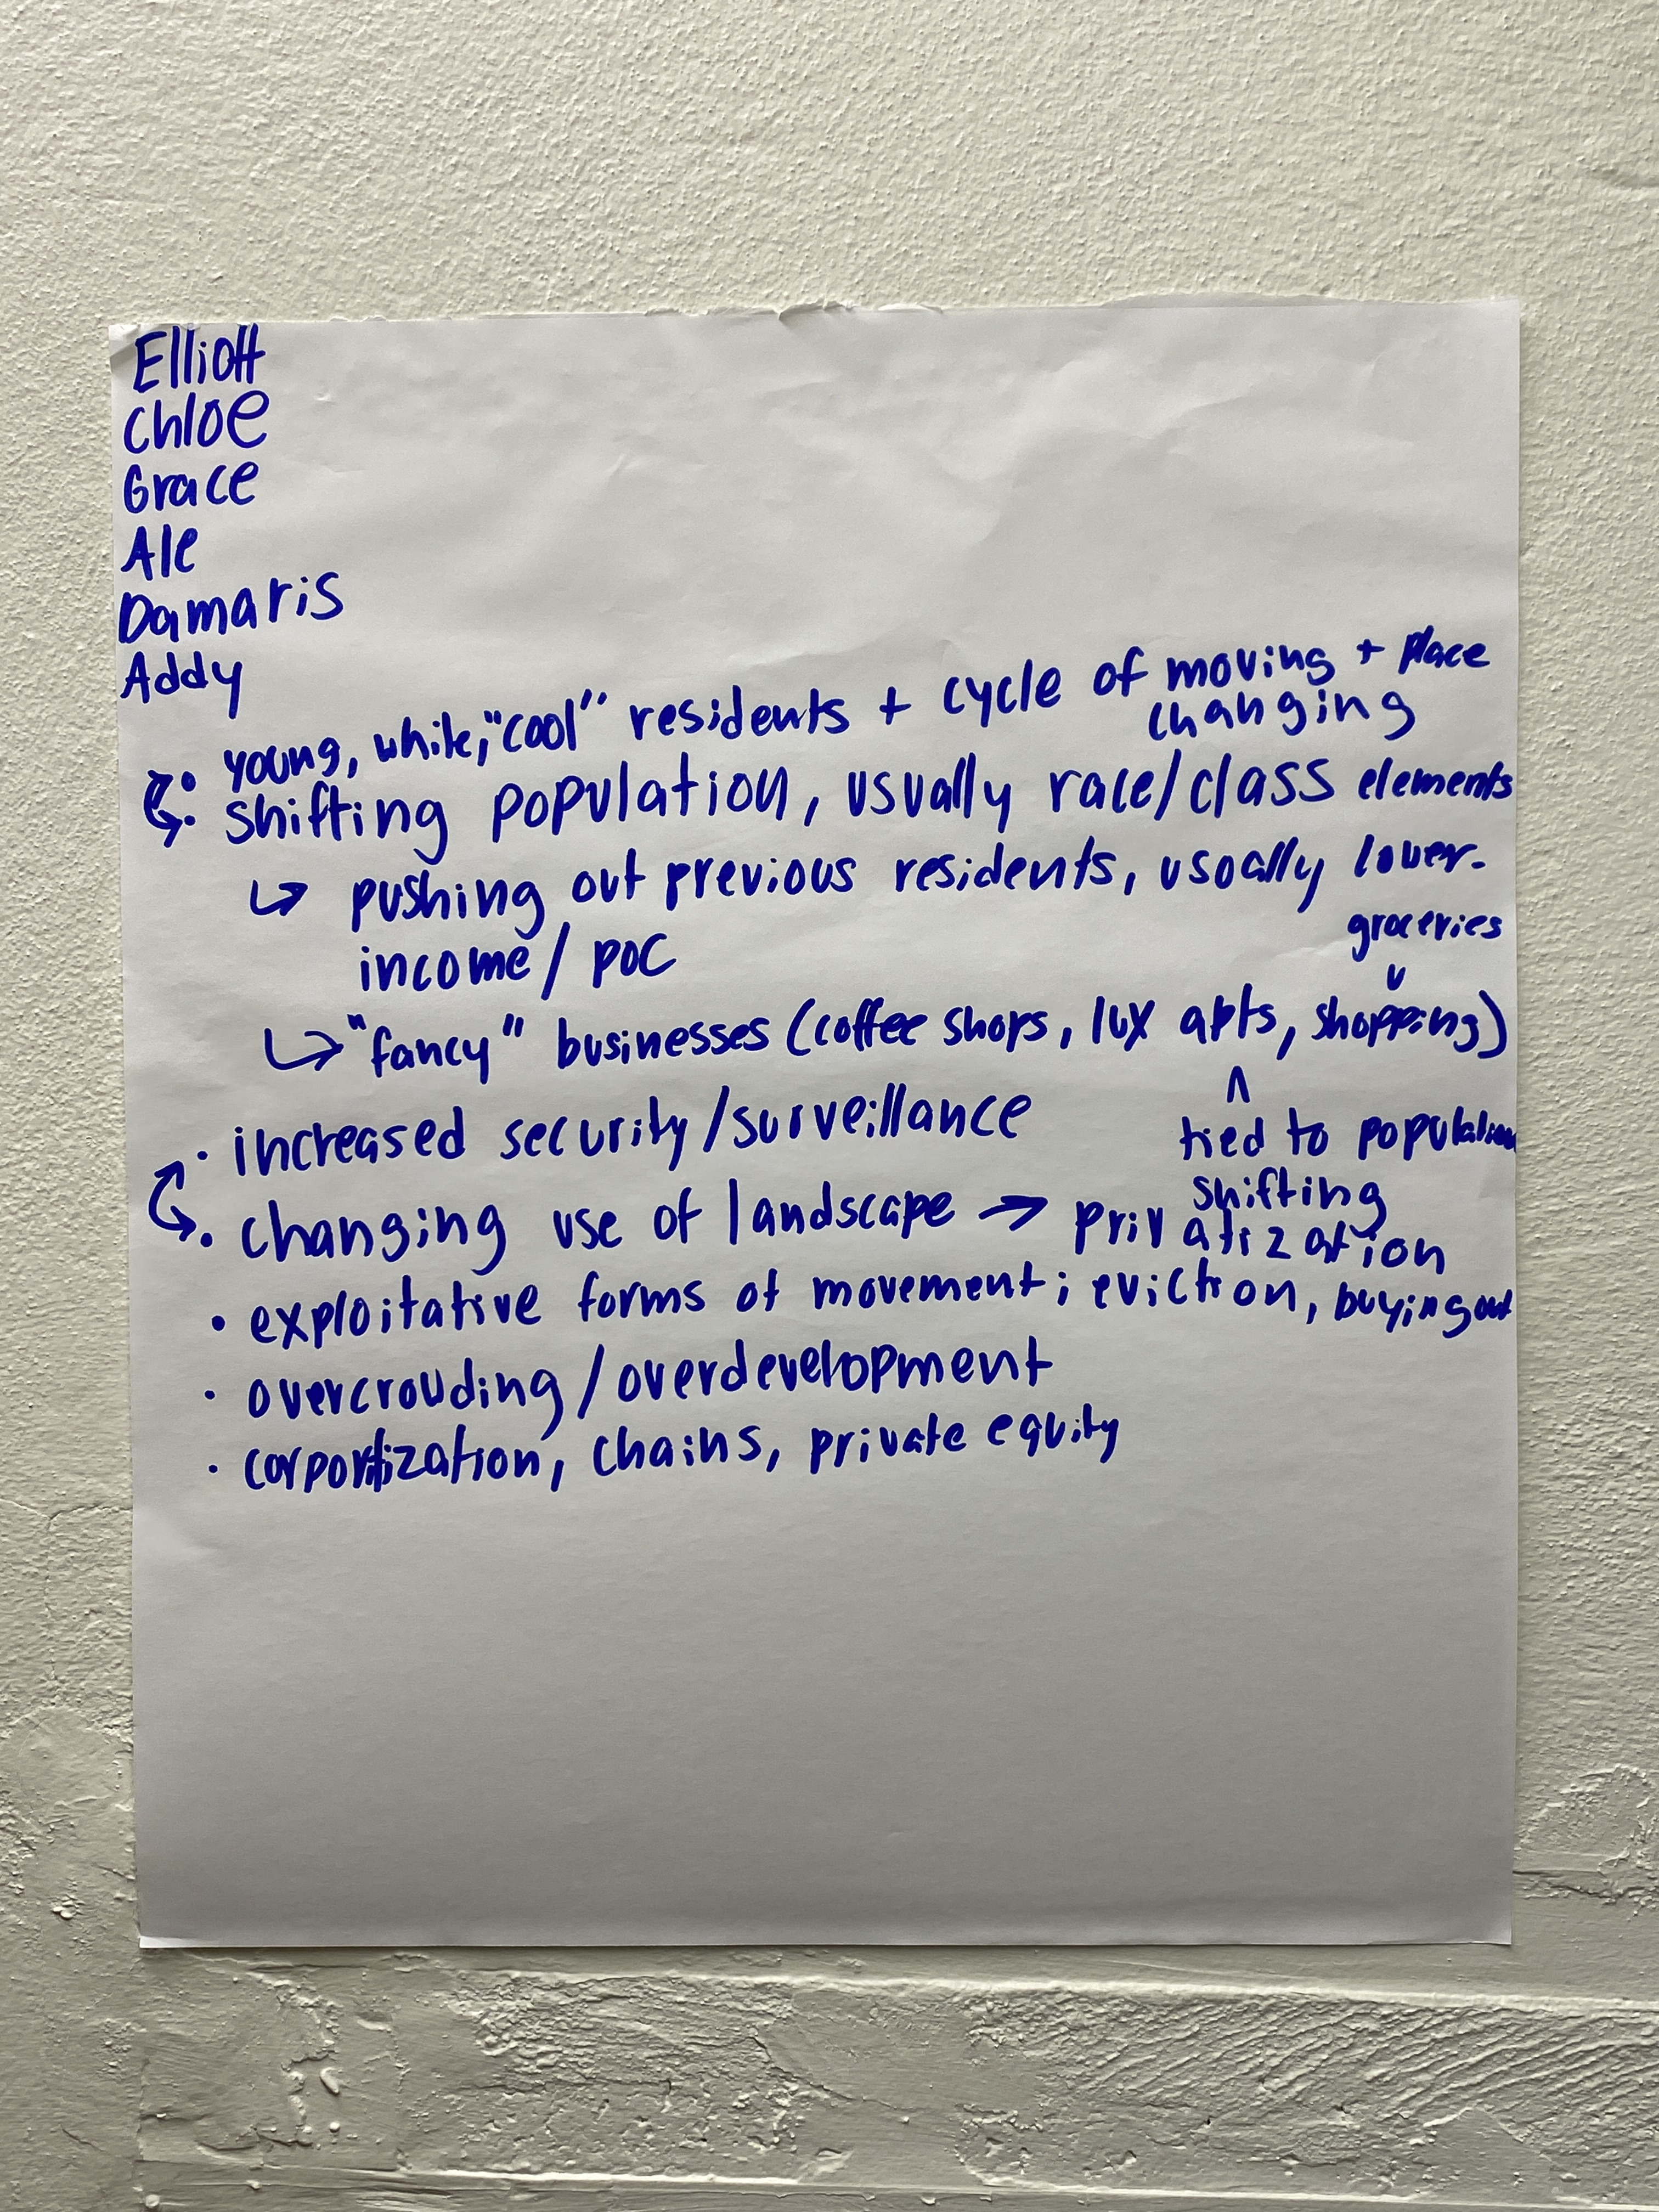 Elliott
Chloe
Grace
Ale
Damaris
Addy
• young, white, "cool" residents + cycle of moving + place
changing
• shifting population, usually race/class elements
↳ pushing out previous residents, usually lower-
income/POC
groceries
↳ "fancy" businesses (coffee shops, lux apts, shopping)
tied to population
shifting
• increased security/surveillance
• changing use of landscape → privatization
• exploitative forms of movement; eviction, buying out
• overcrowding/overdevelopment
• corportization, chains, private equity